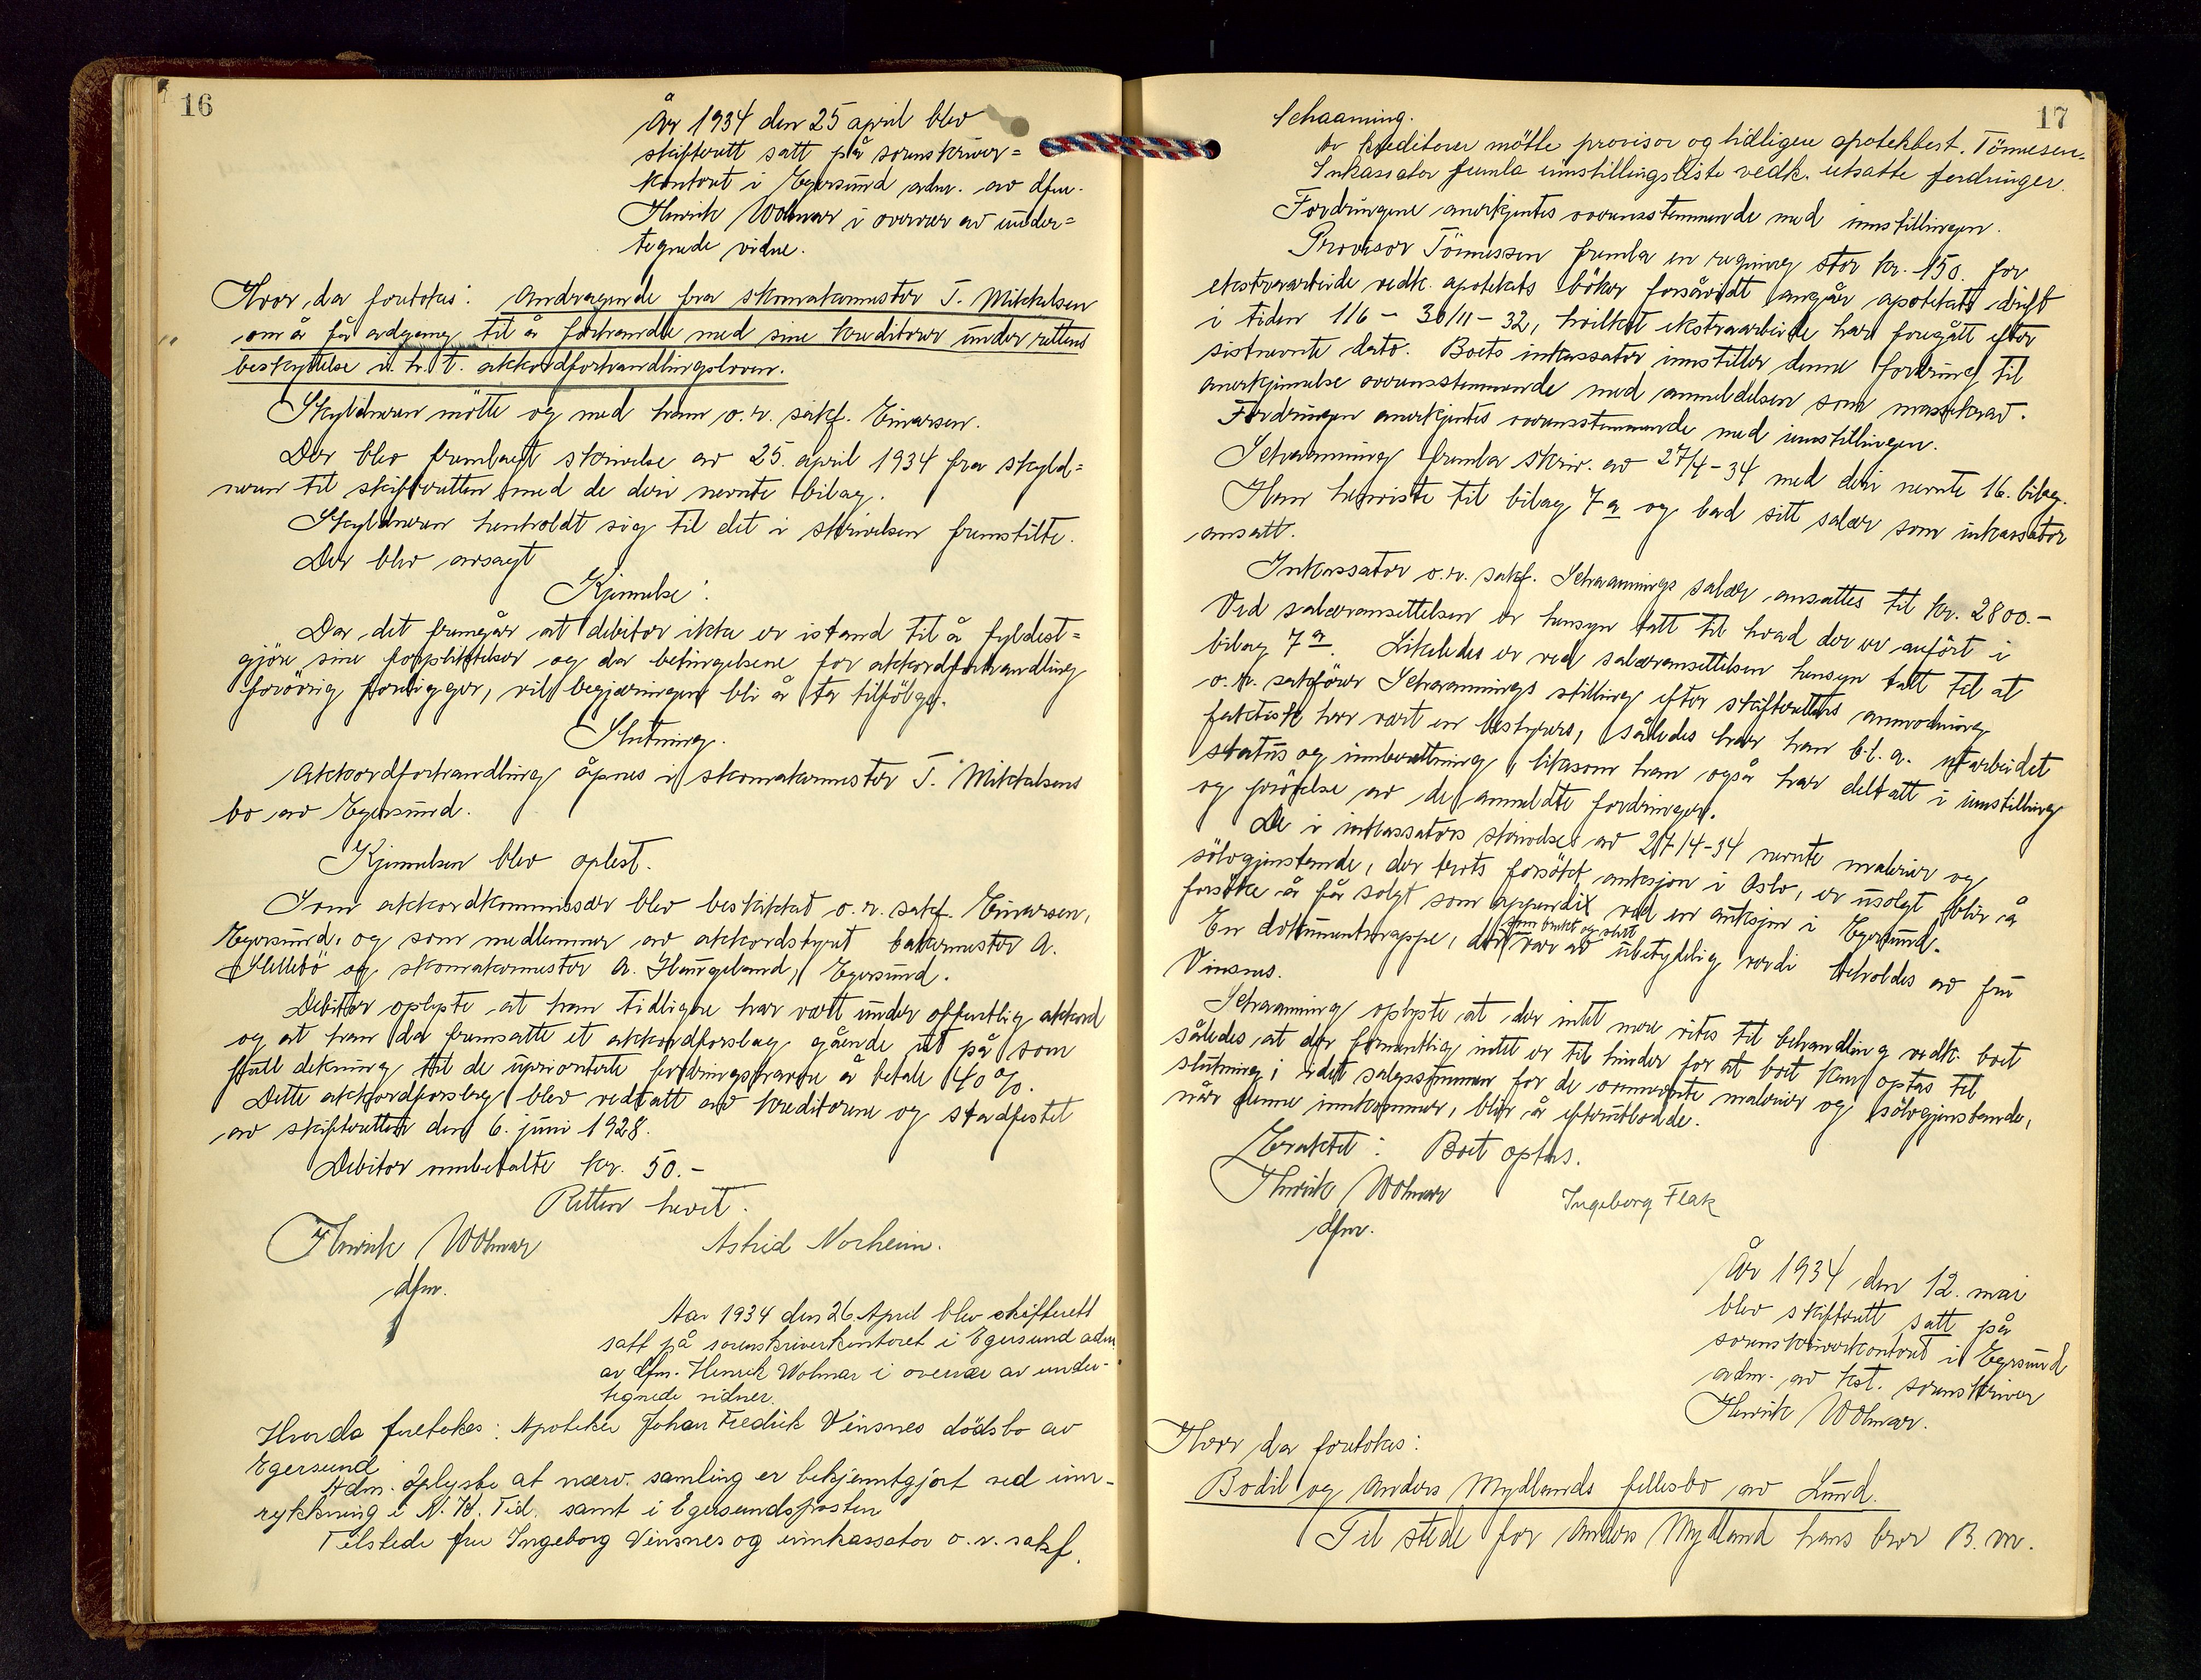 16
År 1934 den 25 april blev
skifterett satt på sorenskriver=
kontoret i Egersund adm. av dfm.
Henrik Wolmar i overvær av under=
tegnede vidne.
Hvor da foretokes: Andragende fra skomakermester T. Mikkelsen
om å få adgang til å forhandle med sine kreditorer under rettens
beskyttelse i h. t. akkordforhandlingsloven.
Skyldneren mötte og med ham o.r. sakf. Einarsen.
Der blev fremlagt skrivelse av 25. april 1934 fra skyld=
neren til skifteretten med de deri nevnte bilag.
Skyldneren henholdt sig til det i skrivelsen fremstilte.
Der blev avsagt
Kjennelse:
Da det fremgår at debitor ikke er istand til å fyldest=
gjöre sine forpliktelser og da betingelsene for akkordforhandling
forövrig foreligger, vil begjæringen bli å ta tilfölge.
Slutning.
Akkordforhandling åpnes i skomakermester T. Mikkelsens
bo av Egersund.
Kjennelsen blev oplest.
Som akkordkommissær blev beskikket o.r. sakf. Einarsen,
Egersund, og som medlemmer av akkordstyret bakermester A.
Slettebö og skomakermester A. Haugeland, Egersund.
Debitor oplyste at han tidligere har vært under offentlig akkord
og at han da fremsatte et akkordforslag gående ut på som
full dekning til de uprioriterte fordringshavere å betale 40 %.
Dette akkordforslag blev vedtatt av kreditorene og stadfestet
av skifteretten den 6. juni 1928.
Debitor innbetalte kr. 50.-
Retten hevet.
Henrik Wolmar
Astrid Norheim.
dfm.
Aar 1934 den 26. April blev skifterett
satt på sorenskriverkontoret i Egersund adm.
av dfm. Henrik Wolmar i overvær av under-
tegnede vidner.
Hvor da foretokes: Apoteker Johan Fredrik Vinsnes dödsbo av
Egersund
Adm. Oplyste at nærv. samling er bekjenntgjort ved inn-
rykkning i N. H. Tid. samt i Egersundsposten
Tilstede fru Ingeborg Vinsnes og innkassator o.r. sakf.
17
Schaaning.
Av kreditorer mötte provisor og tidligere apotekbest. Tönnesen.
Inkassator fremla innstillingsliste vedk. utsatte fordringer.
Fordringene anerkjentes overensstemmende med innstillingen.
Provisor Tönnessen fremla en regning stor kr. 150. for
ekstraarbeide vedk. apotekets böker forsåvidt angår apotekets drift
i tiden 1/6 - 30/11 - 32, hvilket ekstraarbeide har foregått efter
sistnevnte dato. Boets inkassator innstiller denne fordring til
anerkjennelse overensstemmende med anmeldelsen som massekrav.
Fordringen anerkjentes overensstemmende med innstillingen.
Schaanning fremla skriv. av 27/4-34 med deri nevnte 16. bilag.
Han henviste til bilag 7 a og bad sitt salær som inkassator
ansatt.
Inkassator o.r. sakf. Schaannings salær ansattes til kr. 2800.-
Ved salæransettelsen er hensyn tatt til hvad der er anfört i
bilag 7 a. Likeledes er ved salæransettelsen hensyn tatt til at
o.r. sakförer Schaannings stilling efter skifterettens anmodning
faktisk har vært en bestyrers, således har han bl. a. utarbeidet
status og innberetning, likesom han også har deltatt i innstilling
og prövelse av de anmeldte fordringer.
De i inkassators skrivelse av 27/4-34 nevnte malerier og
sölvgjenstande, der trots forsökt auksjon i Oslo, er usolgt blir å
forsöke å få solgt som appendix ved en auksjon i Egersund.
En dokumentmappe, der som brukt og slitt var av ubetydelig verdi beholdes av fru
Vinsnes.
Schaanning oplyste at der intet mere vites til behandling vedk. boet
således at der formentlig intet er til hinder for at boet kan optas til
slutning, idet salgssummen for de omnevnte malerier og sölvgjenstande,
når denne innkommer, blir å efterutlodde.
Ekstraktet: Boet optas.
Henrik Wolmar
Ingeborg Flak
dfm.
År 1934 den 12. mai
blev skifterett satt på
sorenskriverkontoret i Egersund
adm. av kst. sorenskriver
Henrik Wolmar.
Hvor da foretokes:
Bodil og Anders Mydlands fellesbo av Lund.
Til stede for Anders Mydland hans bror B. M.